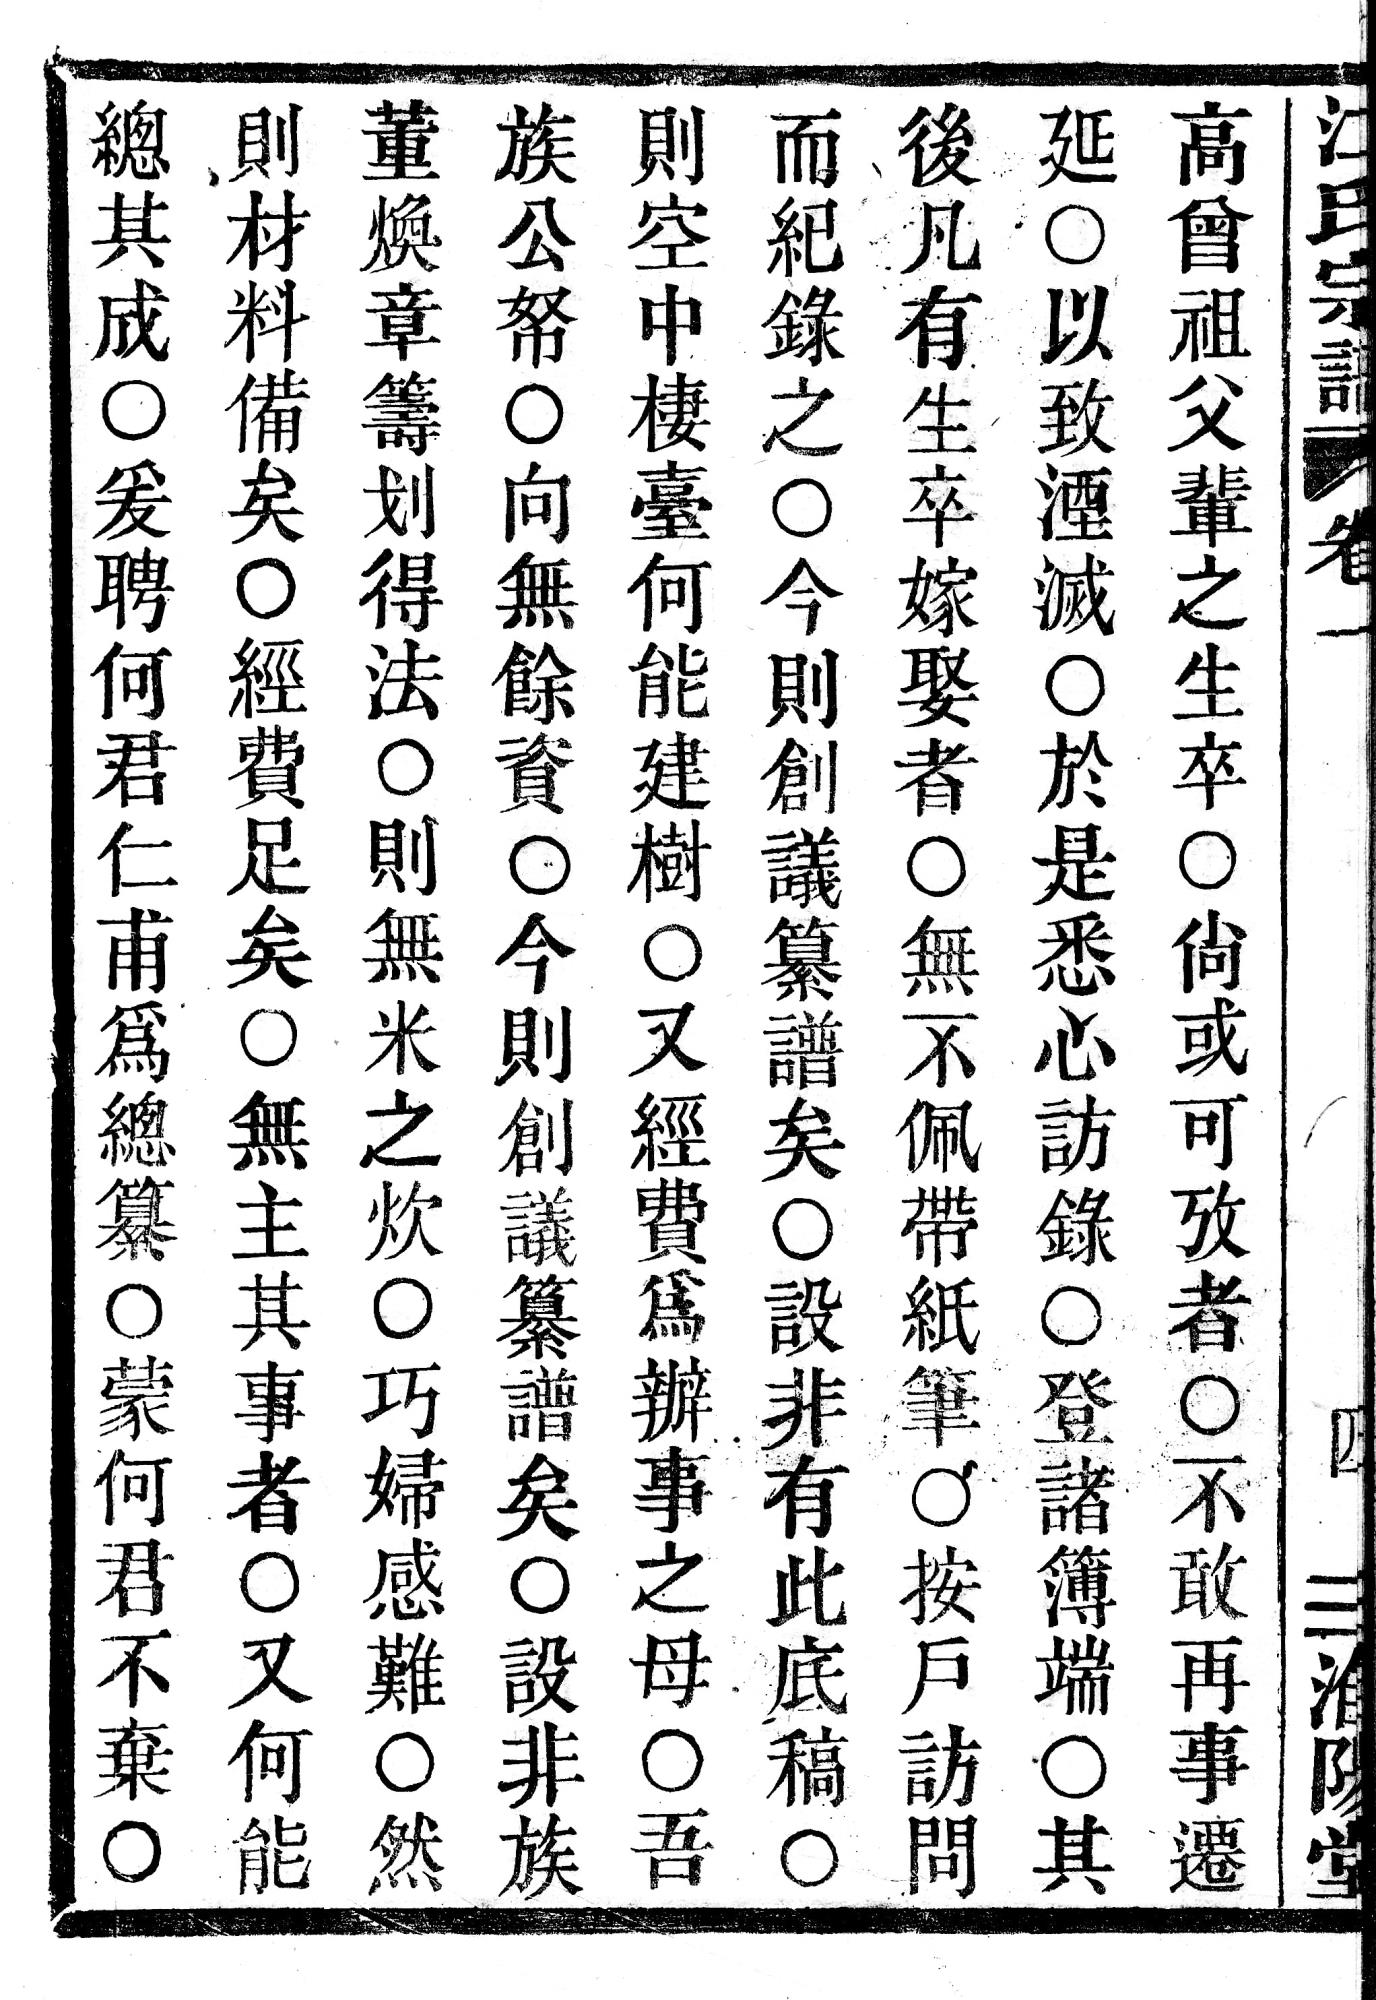 江氏宗譜 卷一 四 淮陽堂
高曾祖父輩之生卒○尙或可攷者○不敢再事遷
延○以致湮滅○於是悉心訪錄○登諸簿端○其
後凡有生卒嫁娶者○無不佩帶紙筆○按戶訪問
而紀錄之○今則創議纂譜矣○設非有此底稿○
則空中棲臺何能建樹○又經費爲辦事之母○吾
族公帑○向無餘資○今則創議纂譜矣○設非族
董煥章籌划得法○則無米之炊○巧婦感難○然
則材料備矣○經費足矣○無主其事者○又何能
總其成○爰聘何君仁甫爲總纂○蒙何君不棄○